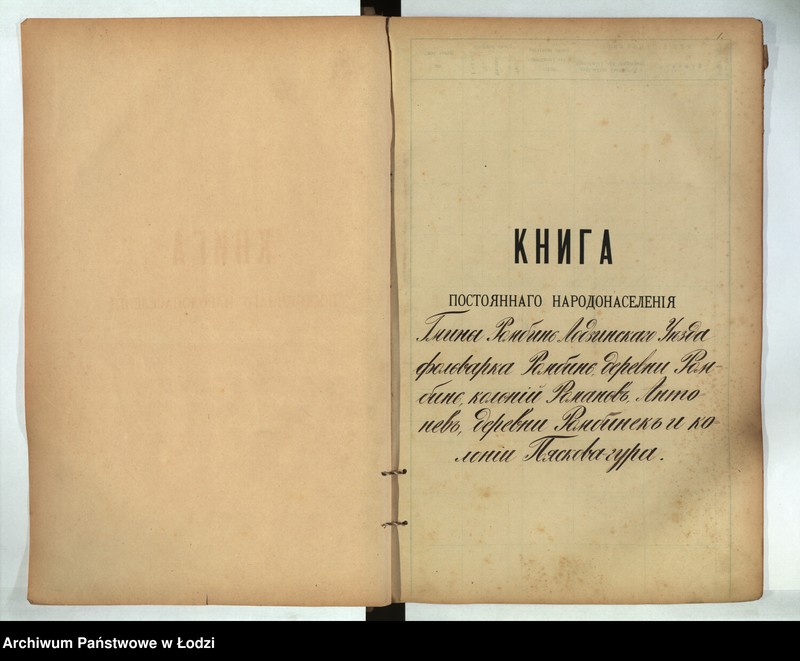 1.
КНИГА
ПОСТОЯННАГО НАРОДОНАСЕЛЕНІЯ
Гмины Ромбинь Лодзинскаго Уѣзда
фольварка Ромбинь, деревни Ром-
бинь, колоній Романовъ, Анто-
невъ, деревни Ромбинекъ и ко-
лоніи Пяскова гура.
Archiwum Państwowe w Łodzi